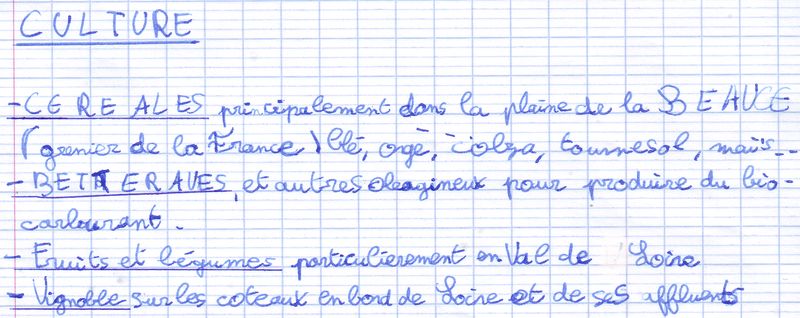 CULTURE
- CEREALES principalement dans la plaine de la BEAUCE
(grenier de la France) blé, orge, colza, tournesol, maïs...
- BETTERAVES, et autres oleagineux pour produire du bio-
carburant.
- Fruits et légumes particulierement en Val de Loire
- Vignoble sur les coteaux en bord de Loire et de ses affluents